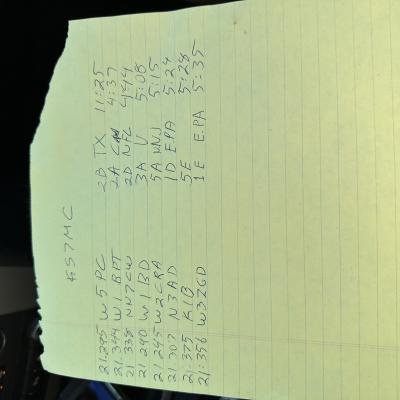 KS7MC
21.295 W5PC 2B TX 11:25
21.344 W1BPT 2A 4:37
21 338 NN7CW 2D NFL 4:44
21 290 W1BD 3A V 5:08
21 245 W2CRA 5A NNJ 5:15
21 307 N3AD 1D EPA 5:24
21:375 K1B 5E 5:28
21:356 W3ZGD 1E E.PA 5:35